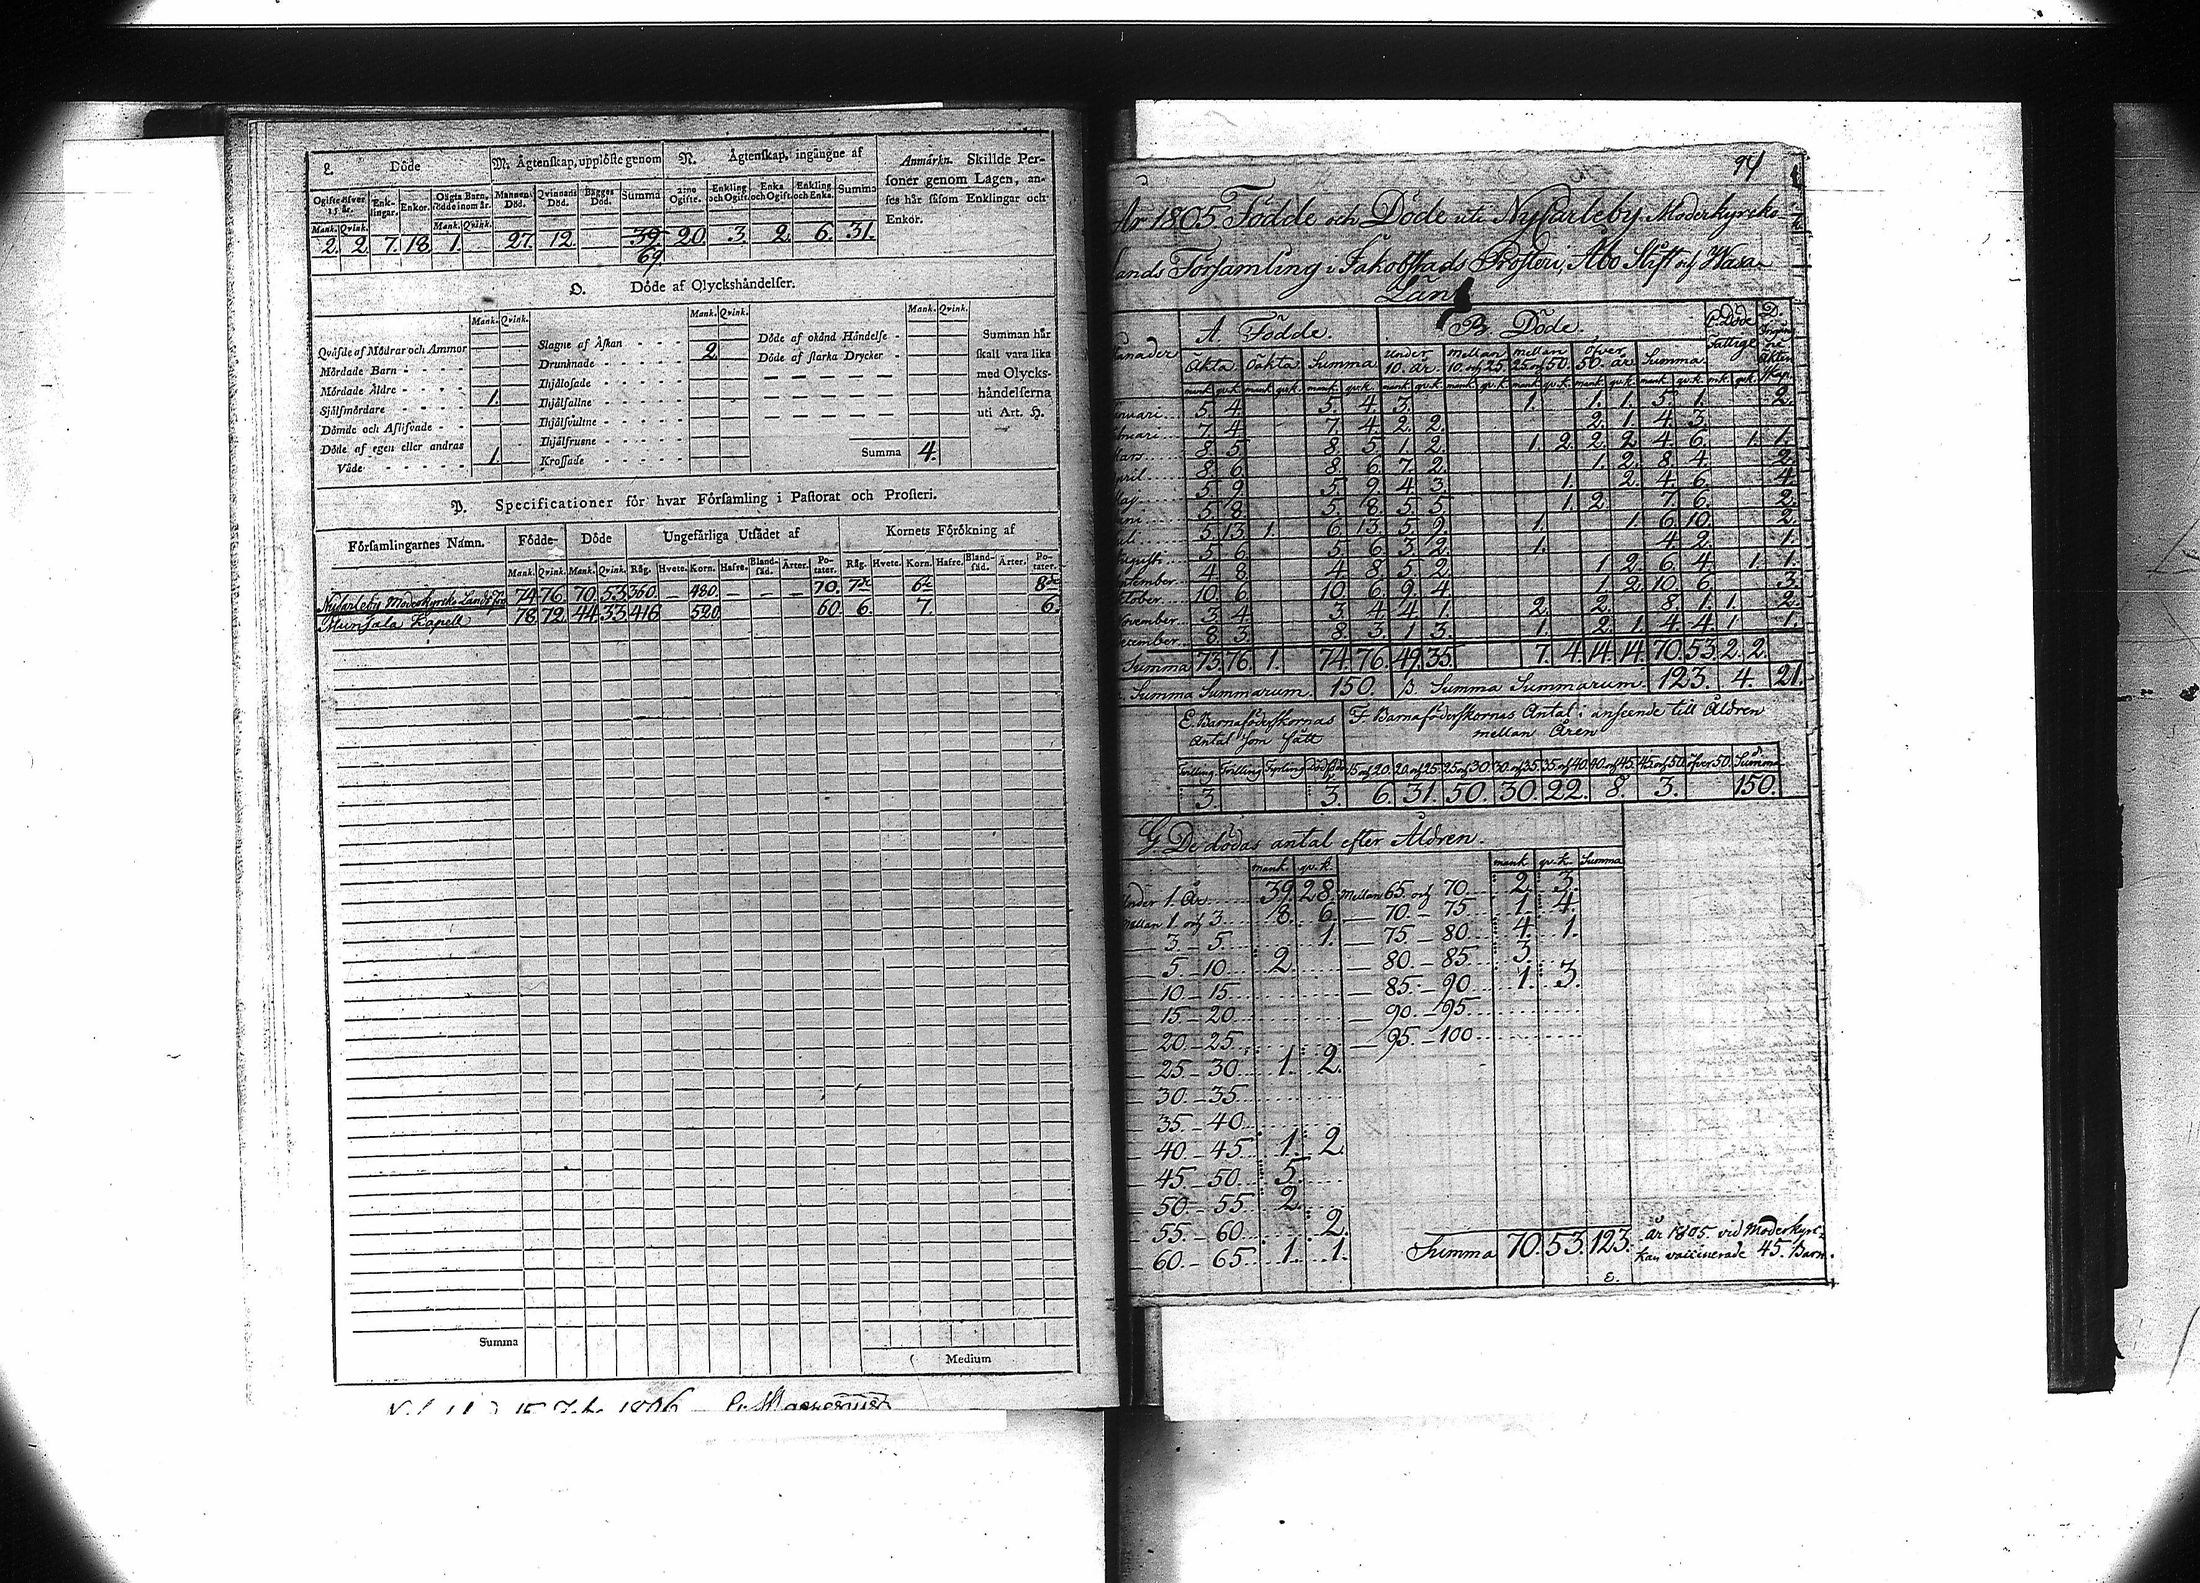 L. Döde
M. Ägtenskap, upplöste genom
N. Ägtenskap, ingångne af
Anmärkn. Skillde Per-
soner genom Lagen, an-
ses här såsom Enklingar och
Enkor.
Ogifte öfver 15 år. Enk-lingar. Enkor. Oägta Barn, födde inom år. Mannens Död. Qvinnans Död. Bägges Död. Summa Ogifte. Enkling och Ogift. Enka och Ogift. Enkling och Enka. Summa
Mank. Qvink. Mank. Qvink.
2. 2. 7. 18. 1. 27. 12. 39. 20. 3. 2. 6. 31.
69.
O. Döde af Olyckshändelser.
Mank. Qvink. Mank. Qvink. Mank. Qvink.
Qväfde af Mödrar och Ammor
Mördade Barn
Mördade Äldre
Självmördare 1.
Dömde och Aflifvade
Döde af egen eller andras
Våde 1.
Slagne af Åskan
Drunknade 2.
Ihjälosade
Ihjälfallne
Ihjälsvultne
Ihjälfrusne
Krossade
Döde af okänd Händelse
Döde af starka Drycker
Summa 4.
Summan här
skall vara lika
med Olycks-
händelserna
uti Art. H.
P. Specificationer för hvar Församling i Pastorat och Prosteri.
Församlingarnes Namn. Födde Döde Ungefärliga Utsädet af Kornets Förökning af
Mank. Qvink. Mank. Qvink. Råg. Hvete. Korn. Hafre. Bland-säd. Ärter. Po-tater. Råg. Hvete. Korn. Hafre. Bland-säd. Ärter. Po-tater.
Nykarleby Moderkyrko Lands 74 76 70 53 360 — 480 — — — 70.
Munsala Kapell 78 72 44 33 416 520 60 6. 7. 6.
Summa
Medium
1806
94
År 1805 Födde och Döde uti NyKarleby Moderkyrko-
Lands Församling i Jakobstads Prosteri, Åbo Stift och Wasa
Län
A. Födde. B. Döde. C. Döde Fattige D.
Äkta Oäkta Summa Under 10. år Mellan 10. och 25 Mellan 25 och 50 Öfver 50. år Summa
mank qv.k. mank qv.k. mank qv.k. mank qv.k. mank qv.k. mank qv.k. mank qv.k. mank qv.k. mk. qvk.
5. 4. 5. 4. 3. 1. 1. 1. 5. 1. 2.
7. 4. 7. 4. 2. 2. 2. 1. 4. 3.
8. 5. 8. 5. 1. 2. 1. 2. 2. 2. 4. 6. 1. 1.
8. 6. 8. 6. 7. 2. 1. 2. 8. 4. 2.
5. 9. 5. 9. 4. 3. 1. 2. 4. 6. 4.
5. 8. 5. 8. 5. 5. 1. 2. 7. 6. 2.
5. 13. 1. 6. 13. 5. 9. 1. 1. 6. 10. 2.
5. 6. 5. 6. 3. 2. 1. 4. 2. 1.
4. 8. 4. 8. 5. 2. 1. 2. 6. 4. 1. 1.
10. 6. 10. 6. 9. 4. 1. 2. 10. 6. 3.
3. 4. 3. 4. 4. 1. 2. 2. 8. 1. 1. 2.
8. 3. 8. 3. 1. 3. 1. 2. 1. 4. 4. 1. 1.
Summa 73. 76. 1. 74. 76. 49. 35. 7. 4. 14. 14. 70. 53. 2. 2.
Summa Summarum 150. Summa Summarum 123. 4. 21.
E. Barnaföderskornas Antal som fått
F. Barnaföderskornas Antal i anseende till Åldren mellan Åren
15 och 20. 20. och 25. 25 och 30. 30. och 35. 35. och 40. 40. och 45. 45. och 50. öfver 50. Summa
3. 3. 6. 31. 50. 30. 22. 8. 3. 150.
G. De dödas antal efter Åldren.
mank qv.k. mank qv.k. Summa
Under 1. År 39. 28. Mellan 65. och 70. 2. 3.
Mellan 1 och 3 8. 6. — 70. — 75 1. 4.
— 3. — 5. 1. — 75 — 80 4. 1.
— 5 — 10 2. — 80. — 85. 3.
— 10 — 15 — 85. — 90 1. 3.
— 15 — 20 — 90. — 95
— 20 — 25 — 95. — 100
— 25 — 30 1. 2.
— 30. — 35
— 35. — 40.
— 40. — 45 1. 2.
— 45. — 50. 5.
— 50 — 55 2.
— 55. — 60 2.
— 60. — 65 1. 1. Summa 70. 53. 123.
år 1805. vid Moderkyr-
kan vaccinerade 45. Barn.